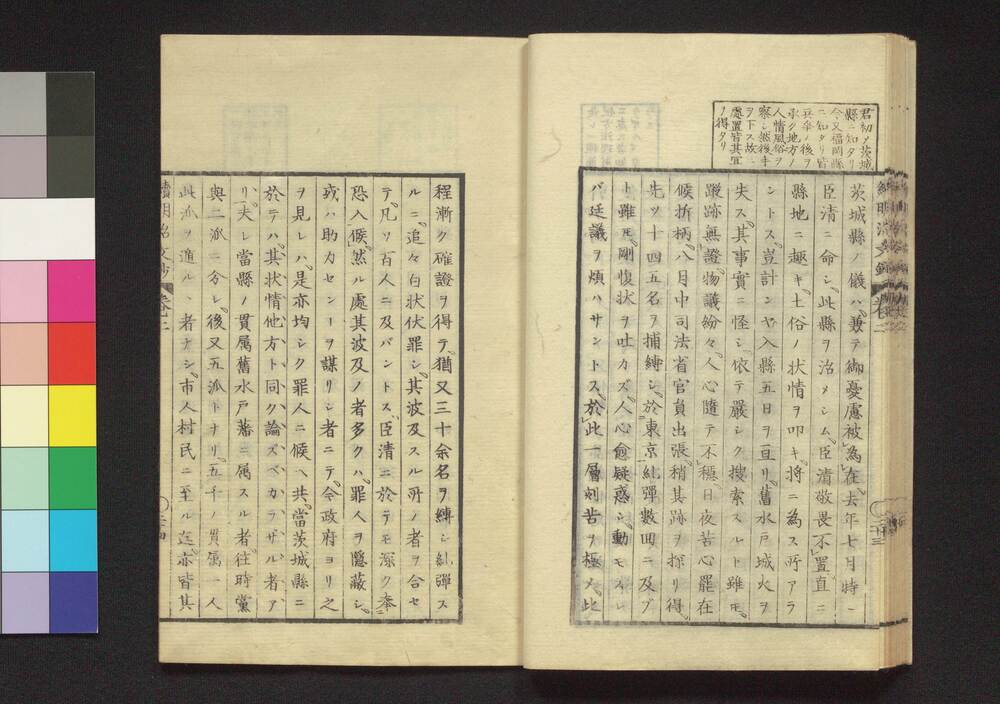 君初メ茨城
縣ニ知タリ
今又福岡縣
ニ知タリ皆
兵傘ノ後ヲ
承ク地方ノ
人情風俗ヲ
察シ然後手
ヲ下ス故ニ
處置皆其宜
ヲ得タリ
茨城縣ノ儀ハ兼テ御憂慮被為在去年七月特ニ
臣清ニ命シ此縣ヲ治メシム臣清敬畏不置直ニ
縣地ニ趣キ士俗ノ状情ヲ叩キ將ニ為ス所アラ
ントス豈計ンヤ入縣五日ヲ亘リ舊水戸城火ヲ
失ス其事實ニ怪シ依テ嚴シク搜索スルト雖モ
蹤跡無證物議紛々人心隨テ不穏日夜苦心罷在
候折柄八月中司法省官員出張稍其跡ヲ探リ得
先ツ十四五名ヲ捕縛シ於東京糺彈數回ニ及ブ
ト雖モ剛愎状ヲ吐カズ人心愈疑惑シ動モスレ
バ廷議ヲ煩ハサントス於此一層刻苦ヲ極メ此
程漸ク確證ヲ得テ猶又三十余名ヲ縛シ糺彈ス
ルニ追々白状伏罪シ其波及スル所ノ者ヲ合セ
テ凡ソ百人ニ及バントス臣清ニ於テモ深ク奉
恐入候然ル處其波及ノ者多クハ罪人ヲ隱蔽シ
或ハ助カセンヿヲ謀リシ者ニテ今政府ヨリ之
ヲ見レハ是亦均シク罪人ニ候ヘ共當茨城縣ニ
於テハ其状情他方ト同ク論ズベカラザル者ア
リ夫レ當縣ノ貫属舊水戸藩ニ属スル者往時黨
與二派ニ分レ後又五派トナリ五千ノ貫属一人
此派ヲ遁ルヽ者ナシ市人村民ニ至ル迄亦皆其